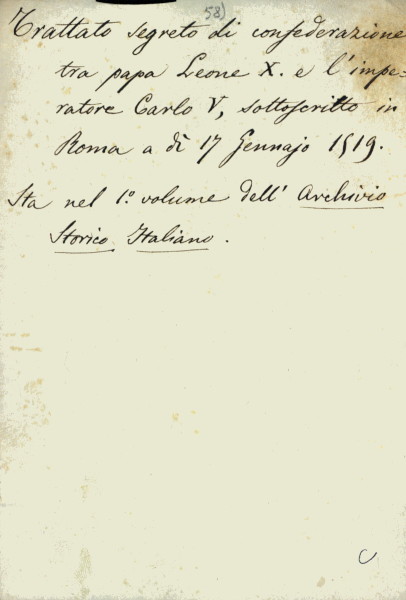 58)
Trattato segreto di confederazione
tra papa Leone X. e l'impe-
ratore Carlo V, sottoscritto in
Roma a dì 17 Gennajo 1519.
Sta nel 1.º volume dell' Archivio
Storico Italiano.
C